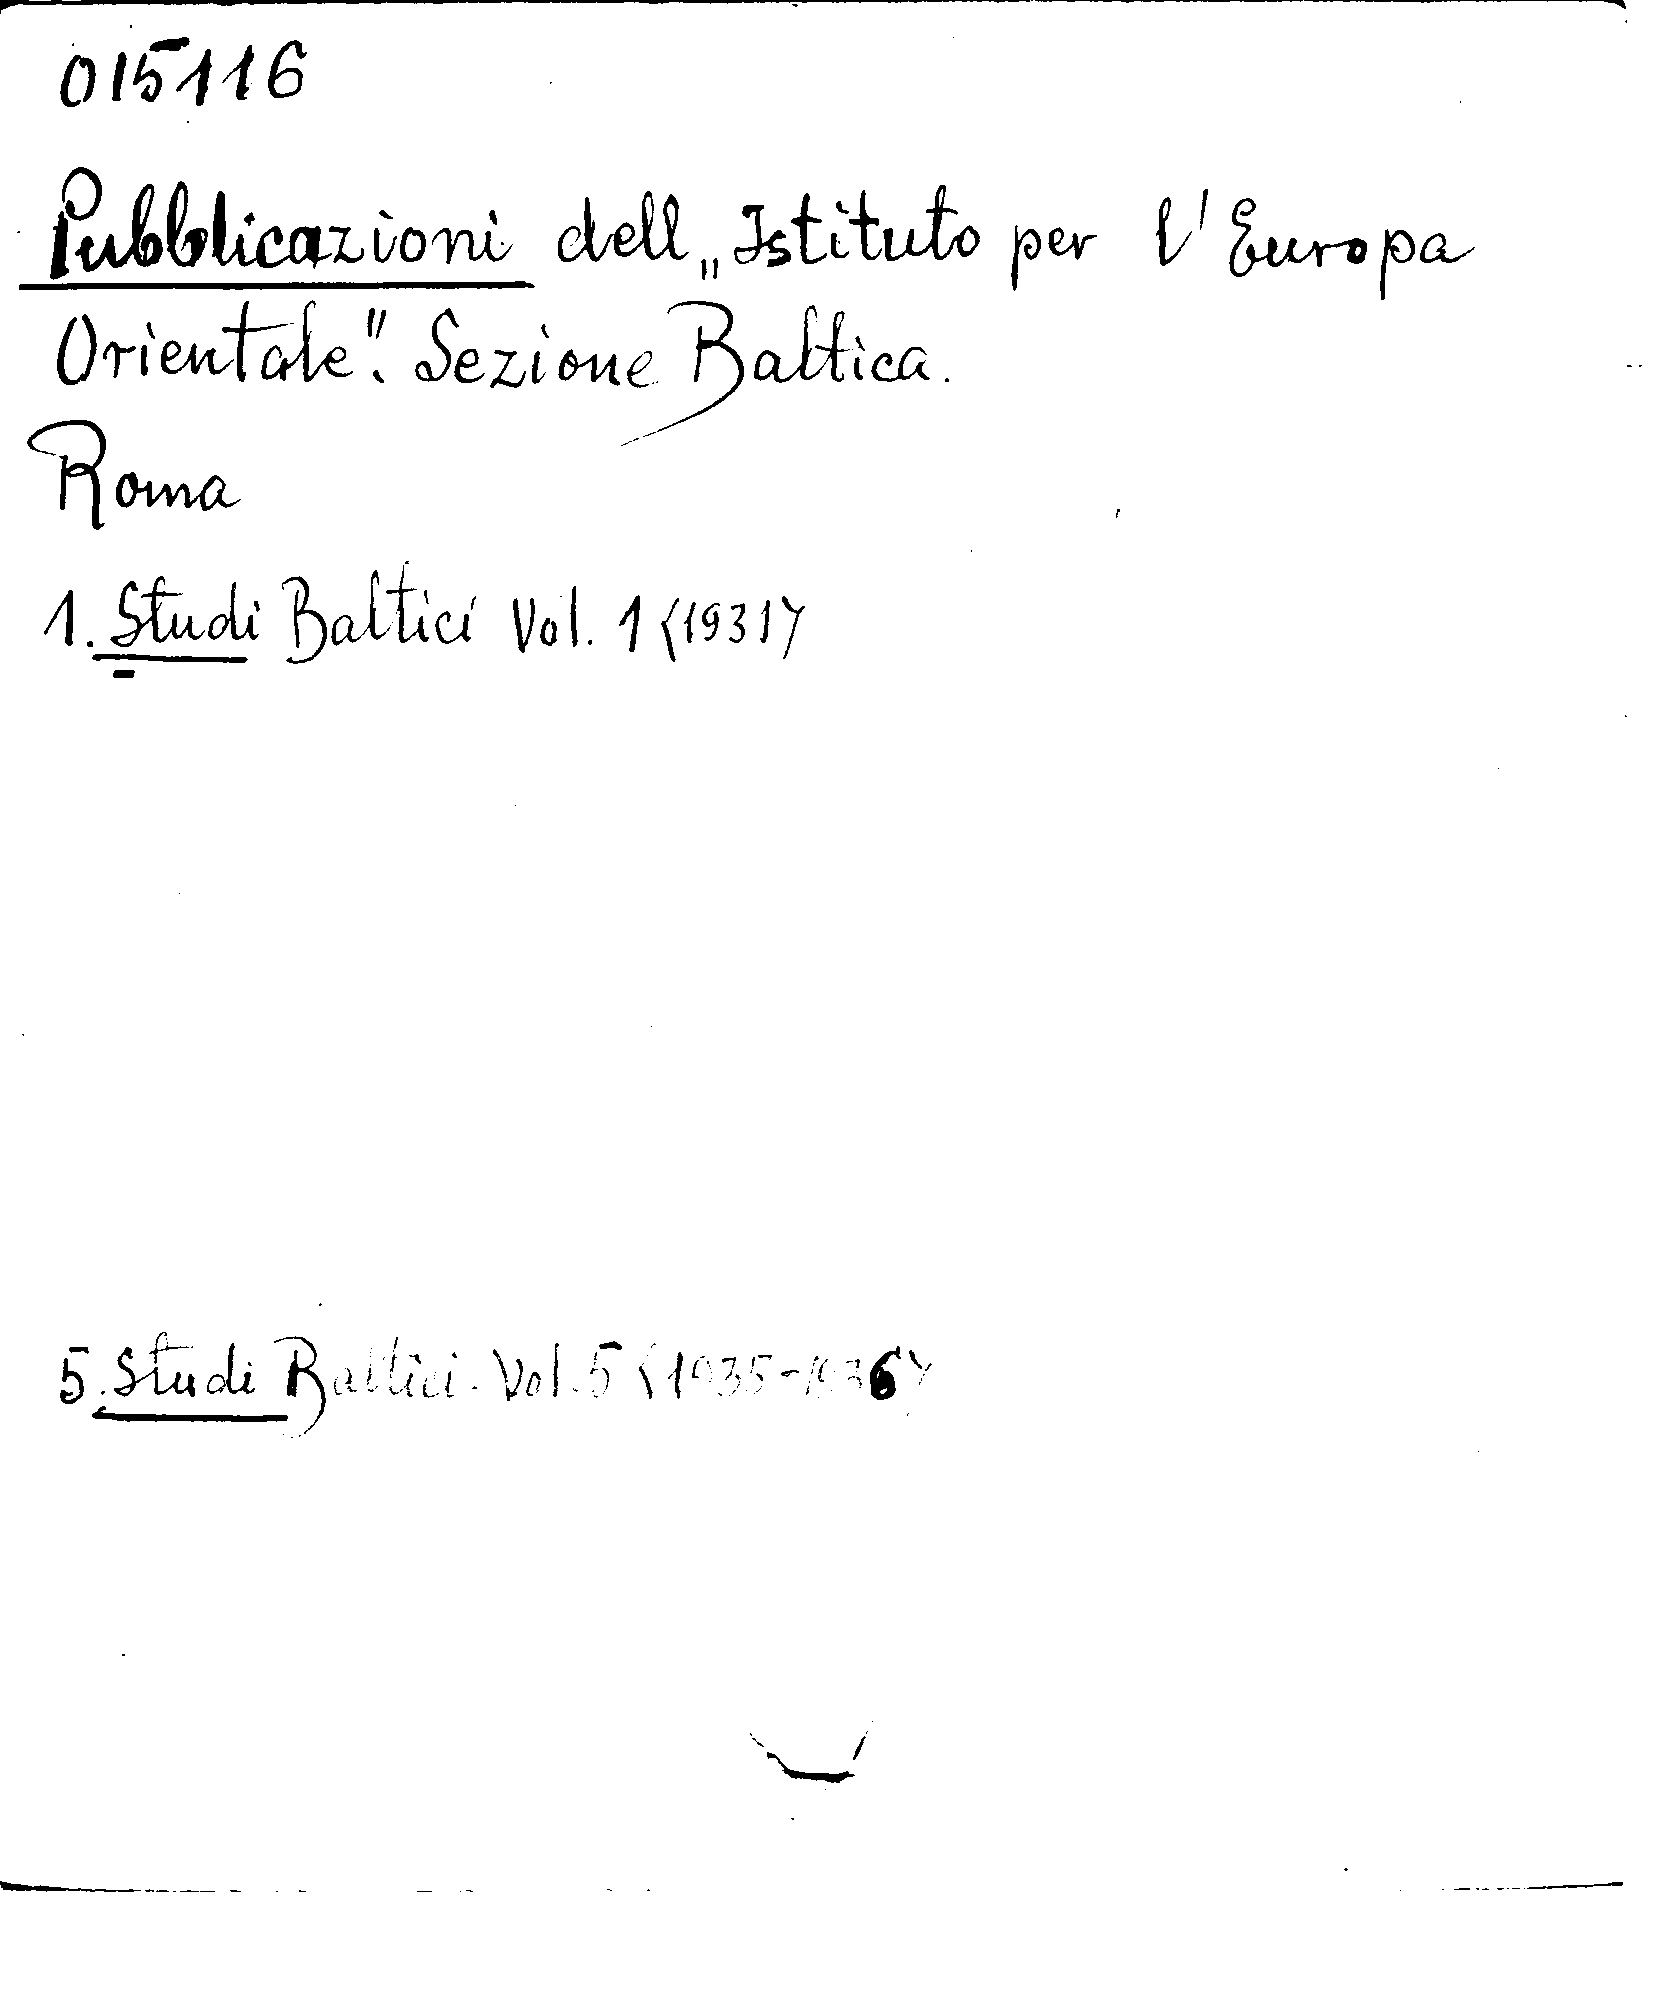 015116
Pubblicazioni dell „Istituto per l'Europa
Orientale". Sezione Baltica.
Roma
1. Studi Baltici Vol. 1 <1931>
5. Studi Baltici. Vol. 5 <1935-1936>